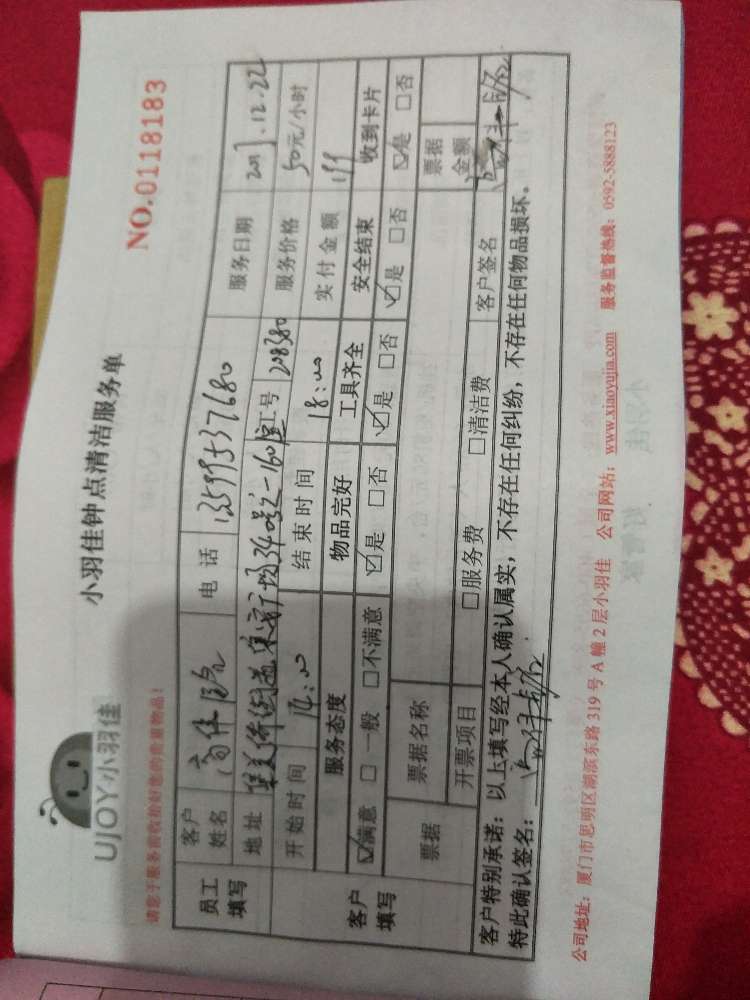 UJOY小羽佳
小羽佳钟点清洁服务单
NO.0118183
请您于服务前收拾好您的贵重物品!
员工填写
客户姓名 高佳 电话 13599537680 服务日期 2017.12.22
地址 集美侨英街道 广场34号之一160室 工号 208380 服务价格 50元/小时
开始时间 14:00 结束时间 18:00 实付金额 199
客户填写
服务态度 物品完好 工具齐全 安全结束 收到卡片
☑满意 □一般 □不满意 ☑是 □否 ☑是 □否 ☑是 □否 ☑是 □否
票据 票据名称 票据金额
开票项目 □服务费 □清洁费 客户签名
客户特别承诺:以上填写经本人确认属实,不存在任何纠纷,不存在任何物品损坏。
特此确认签名:
公司地址:厦门市思明区湖滨东路 319 号 A 幢 2 层小羽佳 公司网站:www.xiaoyujia.com 服务监督热线:0592-5888123